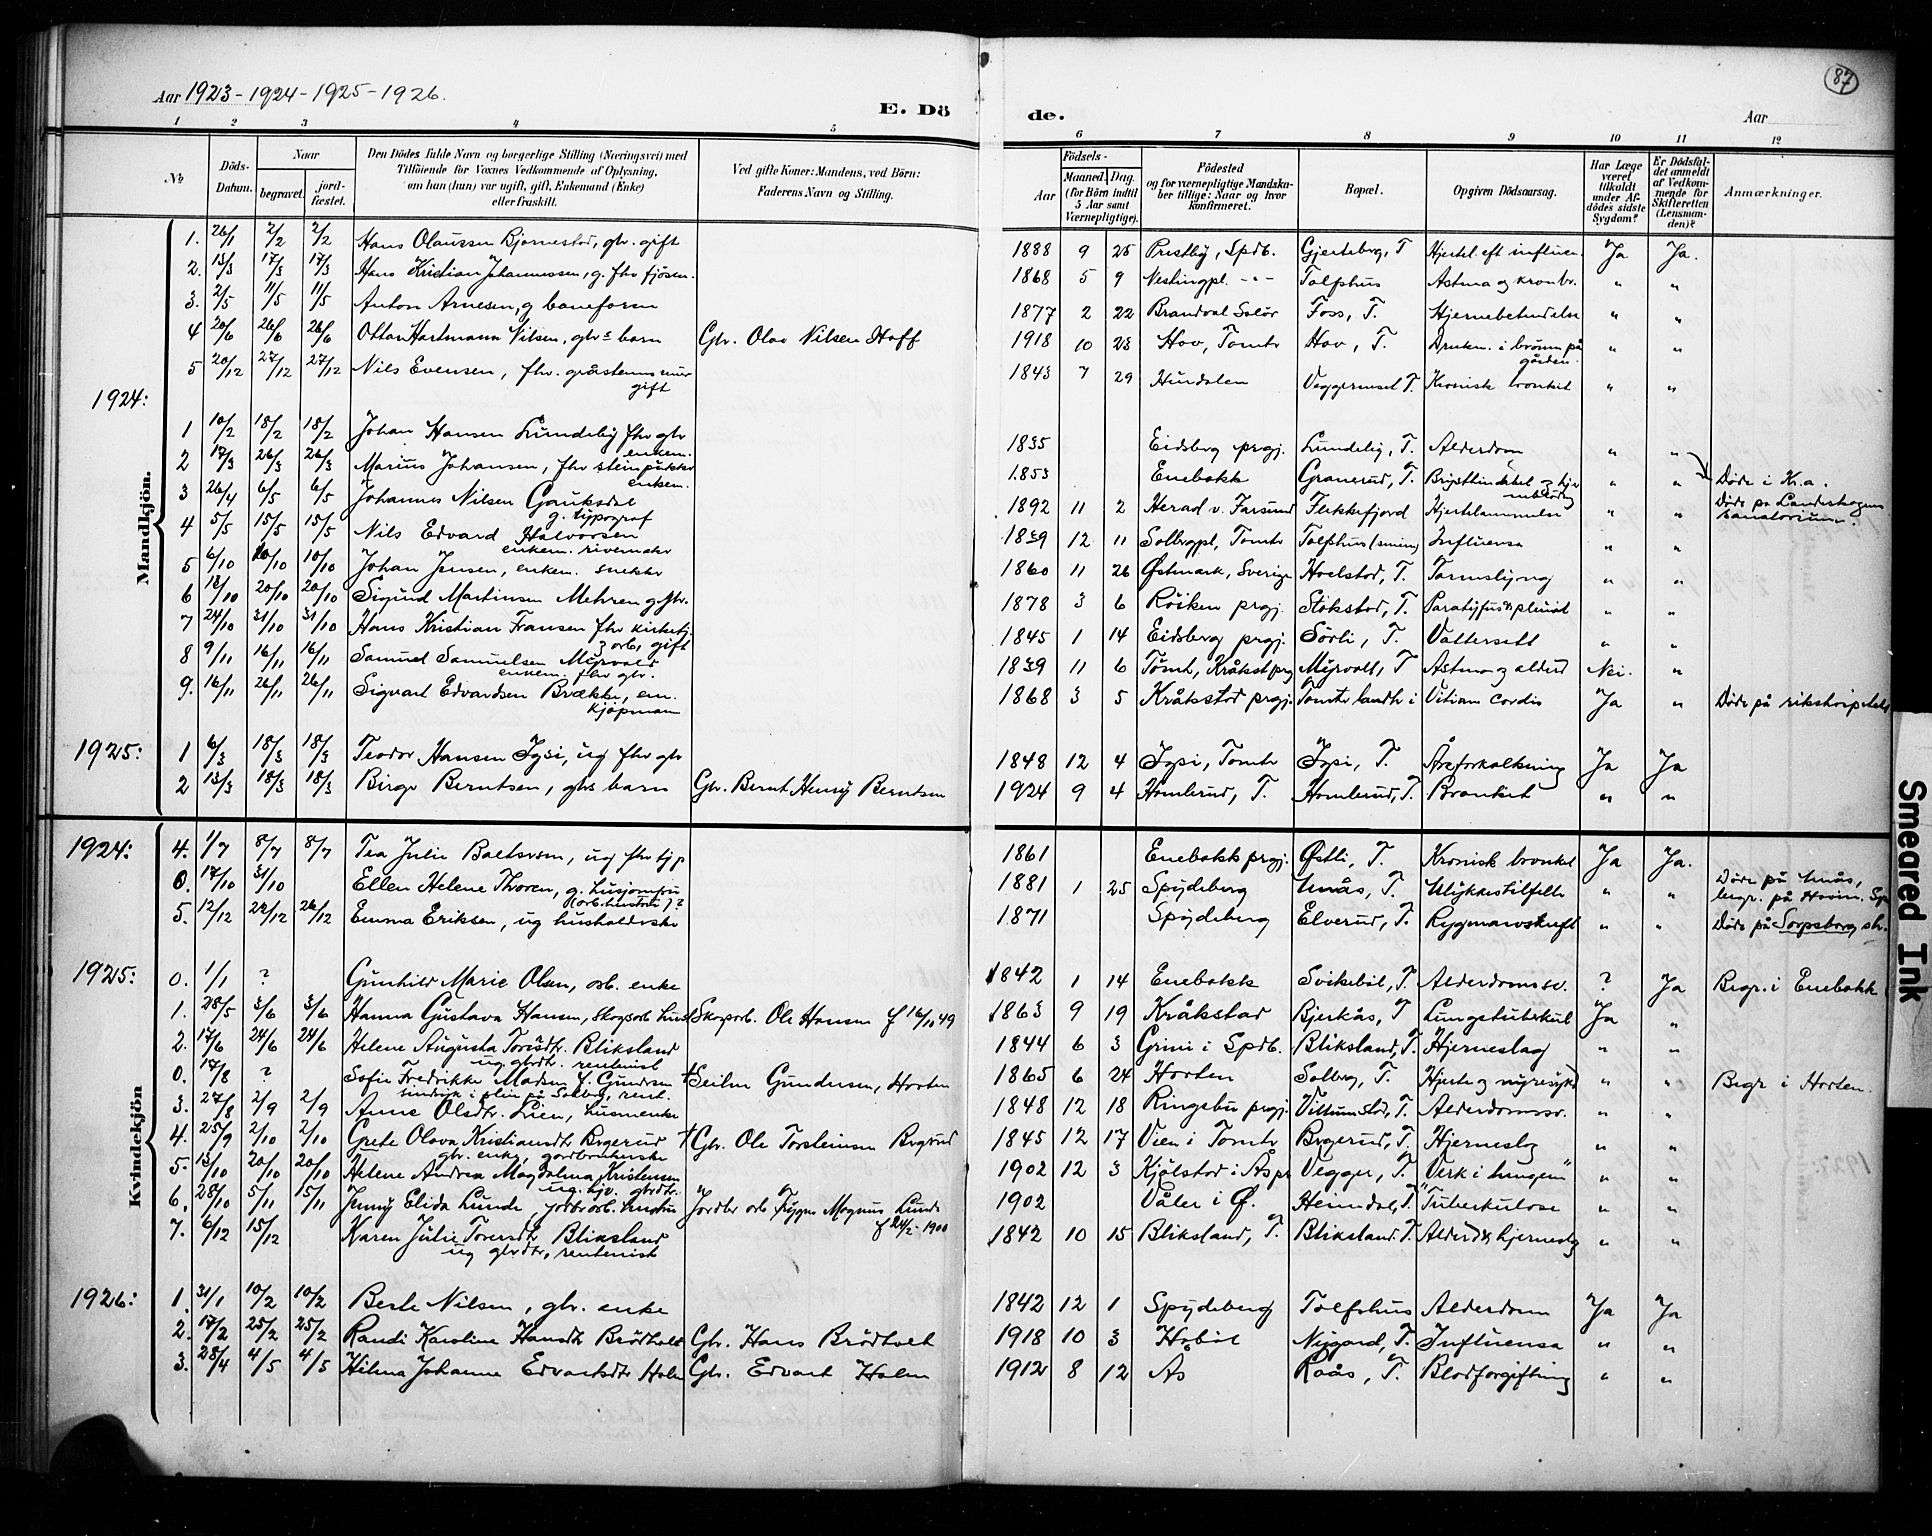 Aar 1923 - 1924 - 1925 - 1926.
E. Döde.
Aar
87
1 2 3 4 5 6 7 8 9 10 11 12
№
Döds-Datum.
Naar
begravet.
jordfæstet.
Den Dödes fulde Navn og borgerlige Stilling (Næringsvei) med
Tilföiende for Voxnes Vedkommende af Oplysning,
om han (hun) var ugift, gift, Enkemand (Enke)
eller fraskilt.
Ved gifte Koner: Mandens, ved Börn:
Faderens Navn og Stilling.
Födsels-
Aar
Maaned. Dag.
(for Börn indtil
5 Aar samt
Værnepligtige).
Födested
og for værnepligtige Mandskaber tillige: Naar og hvor
konfirmeret.
Bopæl.
Opgiven Dödsaarsag.
Har Læge
været
tilkaldt
under Afdödes sidste
Sygdom?
Er Dödsfaldet anmeldt
af Vedkommende for
Skifteretten
(Lensmanden)?
Anmærkninger.
Mandkjön.
1. 26/1 2/2 2/2 Hans Olaussen Bjørnestad, gbr. gift 1888 9 25 Prestby, Spdb. Gjerteberg, T Hjertel. eft influen. Ja Ja.
2. 13/3 17/3 17/3 Hans Kristian Johannessen, g. fhv fjøsm. 1868 5 9 Nestingpl. -"- Tolfshus Astma og kronbr. " "
3. 2/5 11/5 11/5 Anton Arnesen, g baneform 1877 2 22 Brandval Solør Foss, T. Hjernebetendelse " "
4 20/6 26/6 26/6 Ottar Hartmann Nilsen, gbrs barn Gbr. Olav Nilsen Hoff 1918 10 23 Hov, Tomtr Hov, T. Drukn. i brønn på gården. " "
5 20/12 27/12 27/12 Nils Evensen, fhv. gråstensmur gift 1843 7 29 Hundalen Veggermsel T. Kronisk bronket " "
1924:
1 10/2 18/2 18/2 Johan Hansen Lundeby fhv gbr enkem. 1835 Eidsberg prgj. Lundeby, T. Alderdom " "
2 17/3 26/3 26/3 Marius Johansen, fhv steinpukker enkem. 1853 Enebakk Granerud, T. " " Døde i Kr.a.
3 26/4 6/5 6/5 Johannes Nilsen Gauksdal g. typograf 1892 11 2 Herad v. Farsund Flekkefjord Hjertelammelse " " Døde pa Landeskogens sanatorium.
4 5/5 15/5 15/5 Nils Edvard Halvorsen enkem. 1839 12 11 Solbergpl, Tomtr Tolfshus Influensa " "
5 6/10 10/10 10/10 Johan Jensen, enkem. snekke 1860 11 26 Østmark, Sverige Hoelstad, T. Tarmslyng " "
6 13/10 20/10 20/10 Sigurd Martinsen Mehren g. gbr. 1878 3 6 Røiken prgj. Stokstad, T. Paratyfus " "
7 24/10 31/10 31/10 Hans Kristian Fransen fhv kirketj. orb, gift 1845 1 14 Eidsberg prgj. Sørli, T. Vattersott " "
8 9/11 16/11 16/11 Samuel Samuelsen Myrvold enkem. fhv gbr. 1839 11 6 Tomtr, Kråkst prg Myrvoll, T Astma og alderd Nei. "
9. 16/11 26/11 26/11 Sigvart Edvardsen Brække, em. kjøpmann 1868 3 5 Kråkstad prgj. Tomtr landh i Vitium cordis Ja " Døde på rikshospitalet
1925:
1 6/3 18/3 18/3 Teodor Hansen Igsi, ug fhv gbr 1848 12 4 Igsi, Tomtr Igsi, T. Åreforkalkning Ja Ja
2 13/3 18/3 18/3 Birger Berntsen, gbrs barn Gbr. Bernt Henry Berntsen 1924 9 4 Homlerud, T. Homlerud, T. Bronket " "
Kvindekjön
1924:
4. 1/7 8/7 8/7 Tea Julie Baltsersen, ug fhv tjp 1861 Enebakk prgj. Østli, T. Kronisk bronket Ja Ja.
0. 17/10 31/10 Ellen Helene Thoren, g. husjomfru (arb.hustru)? 1881 1 25 Spydeberg Unås, T. Ulykkestilfelle " " Døde på Unås, begr. på Hovin. Sp
5. 12/12 22/12 26/12 Emma Eriksen, ug husholderske 1871 Spydeberg Elverud, T. Rygmarvskreft " " Døde på Sarpsborg sh.
1925:
0. 1/1 ? Gunhild Marie Olsen, arb. enke 1842 1 14 Enebakk Svikebøl, T. Alderdomssv. ? Ja Begr. i Enebakk
1. 28/5 3/6 3/6 Hanna Gustava Hansen, Skogsarb. hust Skogarb. Ole Hansen f 16/10 49 1863 9 19 Kråkstad Bjerkås, T Lungetuberkul Ja "
2. 17/6 24/6 24/6 Helene Augusta Toresdtr. Bliksland ug gbrdt. rentenist 1844 6 3 Grini i Spdb. Bliksland, T. Hjerneslag " "
0. 17/8 ? Sofie Fredrikke Madsen f. Gundersen i pleie på Solberg, rent. † Seilm Gundersen, Horten 1865 6 24 Horten Solberg, T. Hjerte og nyresyk " " Begr i Horten.
3. 27/8 2/9 2/9 Anne Olsdtr. Lien, husmenke 1848 12 18 Ringebu prgj. Vittumstad, T. Alderdomssv. " "
4. 25/9 2/10 2/10 Grete Olava Kristiansdtr Bogerud gbr. enke, gardbrukerske † Gbr. Ole Torsteinsen Bogerud 1845 12 17 Vien i Tomtr Bogerud, T. Hjerneslag " "
5. 13/10 20/10 20/10 Helene Andrea Magdalena Kristensen ug. hjv. gbrdtr. 1902 12 3 Kjølstad i Ås pr Vegger, T. "Verk i lungen" " "
6. 28/10 5/11 15/11 Jenny Elida Lunde, jordbrarb. hustru Jordbr arb Trygve Magnus Lunde f 24/2-1900 1902 Våler i Ø. Heimdal, T. Tuberkulose " "
7. 6/12 15/12 Karen Julie Toresdtr Bliksland ug gbrdtr, rentenist 1842 10 15 Bliksland, T. Bliksland. T. Alderd & hjerneslg " "
1926:
1. 31/1 10/2 10/2 Berte Nilsen, gbr. enke 1842 12 1 Spydeberg Tolfshus Alderdom Ja Ja
2. 17/2 25/2 25/2 Randi Karoline Hansdtr Brødholt Gbr. Hans Brødholt 1918 10 3 Hobøl Nygard, T. Influensa " "
3. 28/4 4/5 4/5 Hilma Johanne Edvartsdtr Holm Gbr. Edvart Holm 1912 8 12 Ås Raås, T. Blodforgiftning " "
Smeared Ink